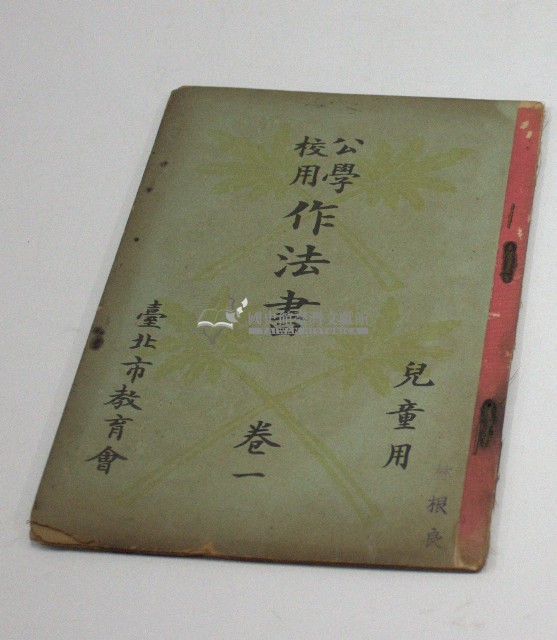 公學
校用
作法書
卷一
兒童用
臺北市教育會
根良
國史館臺灣文獻館
TAIWAN HISTORICA